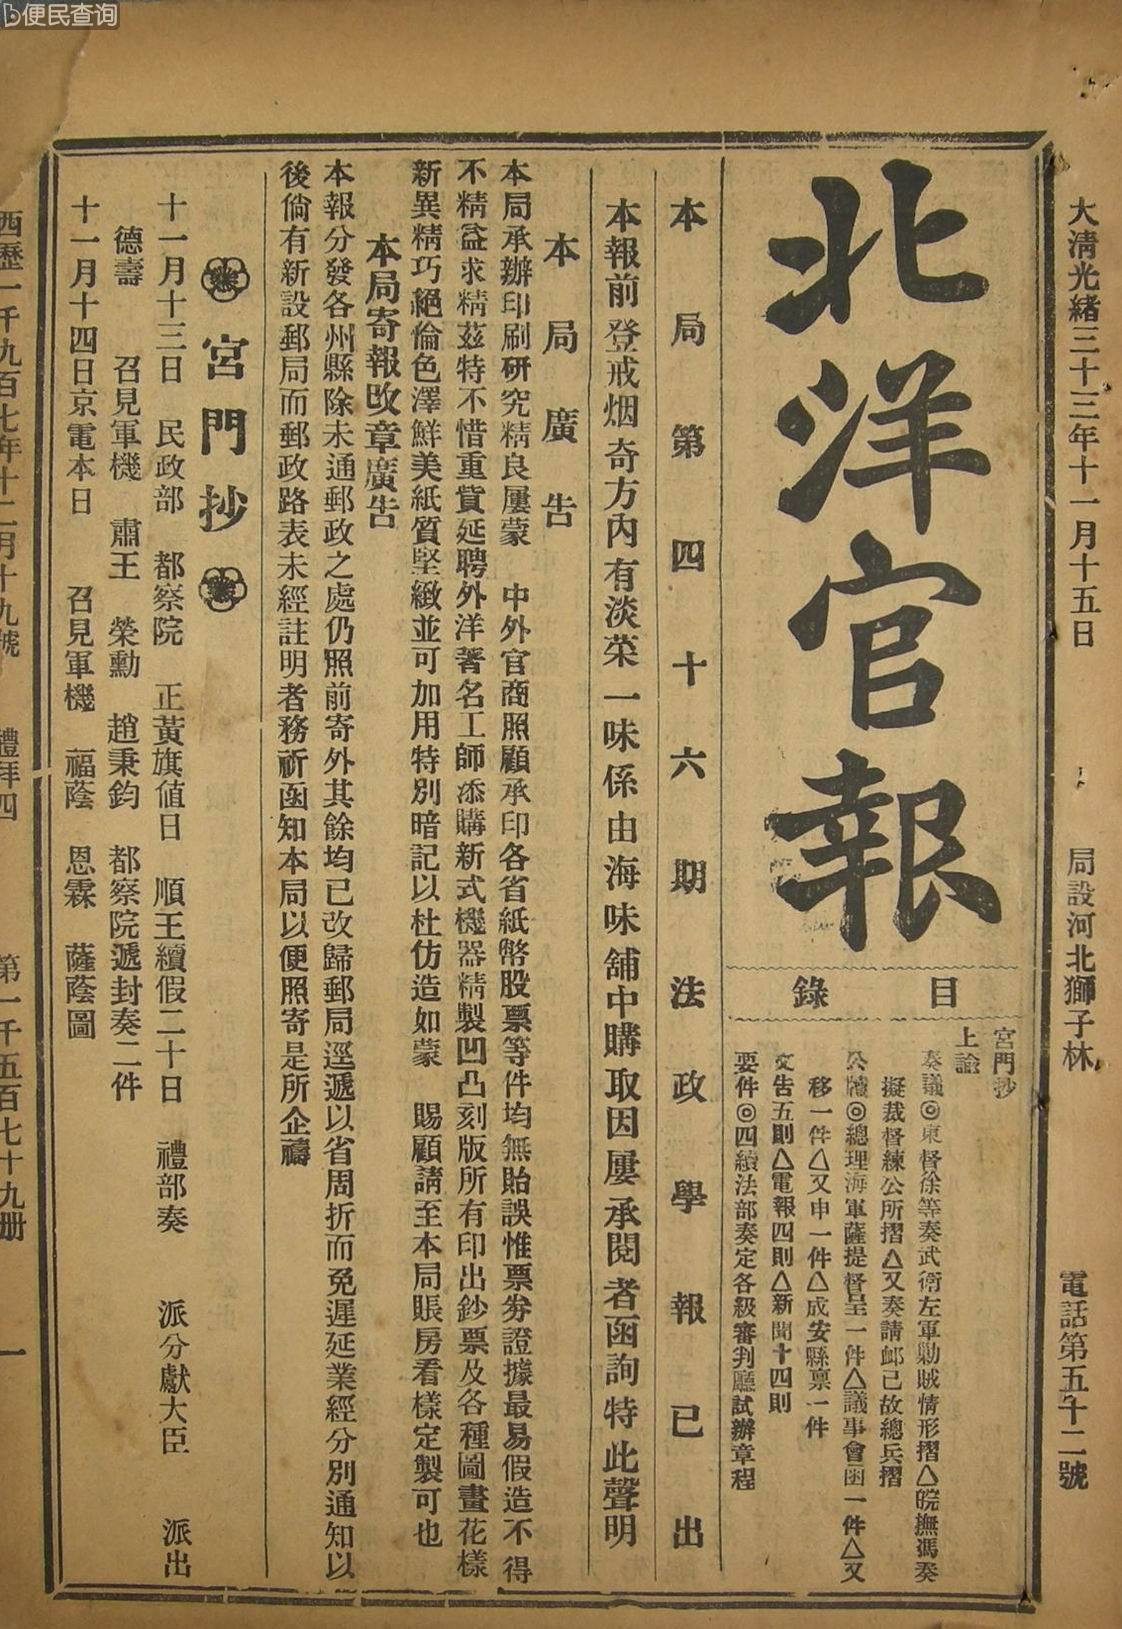 便民查询
大清光緒三十三年十一月十五日
局設河北獅子林
電話第五十二號
北洋官報
目錄
宮門抄
上諭
奏議◎東督徐等奏武衛左軍勦賊情形摺△皖撫馮奏
擬裁督練公所摺△又奏請卹已故總兵摺
公牘◎總理海軍薩提督呈一件△議事會函一件△又
移一件△又申一件△成安縣禀一件
文告五則△電報四則△新聞十四則
要件◎四續法部奏定各級審判廳試辦章程
本局第四十六期法政學報已出
本報前登戒烟奇方內有淡菜一味係由海味舖中購取因屢承閱者函詢特此聲明
本局廣告
本局承辦印刷研究精良屢蒙 中外官商照顧承印各省紙幣股票等件均無貽誤惟票券證據最易假造不得
不精益求精茲特不惜重貲延聘外洋著名工師添購新式機器精製凹凸刻版所有印出鈔票及各種圖畫花樣
新異精巧絕倫色澤鮮美紙質堅緻並可加用特別暗記以杜仿造如蒙 賜顧請至本局賬房看樣定製可也
本局寄報改章廣告
本報分發各州縣除未通郵政之處仍照前寄外其餘均已改歸郵局逕遞以省周折而免遲延業經分別通知以
後倘有新設郵局而郵政路表未經註明者務祈函知本局以便照寄是所企禱
宮門抄
十一月十三日 民政部 都察院 正黃旗値日 順王續假二十日 禮部奏 派分獻大臣 派出
德壽 召見軍機 肅王 榮勳 趙秉鈞 都察院遞封奏二件
十一月十四日京電本日 召見軍機 福蔭 恩霖 薩蔭圖
西歷一千九百七年十二月十九號
禮拜四
第一千五百七十九册
一